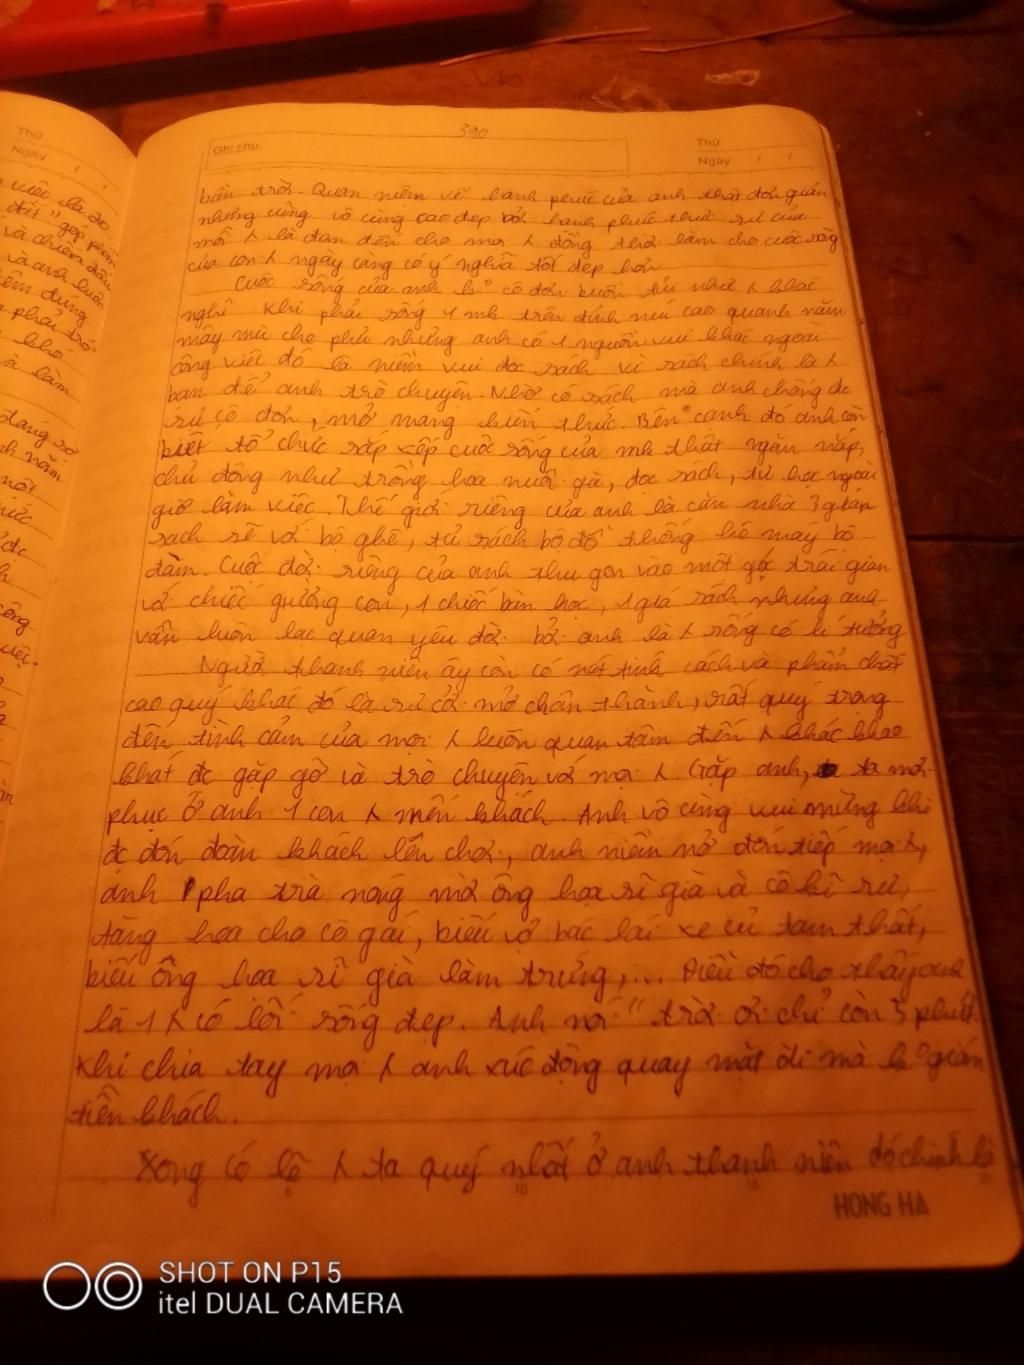 390
Ghi chú:
Thứ
Ngày / /
Thứ
Ngày / /
bầu trời. Quan niệm về hạnh phúc của anh thật đơn giản
nhưng cũng vô cùng cao đẹp bởi hạnh phúc thực sự của
mỗi λ là đem đến cho mọi λ đồng thời làm cho cuộc sống
của con λ ngày càng có ý nghĩa tốt đẹp hơn
Cuộc sống của anh k° cô đơn buồn tủi như λ khác
nghĩ khi phải sống 1 mh trên đỉnh núi cao quanh năm
mây mù che phủ nhưng anh có 1 nguồn vui khác ngoài
công việc đó là niềm vui đọc sách vì sách chính là λ
bạn để anh trò chuyện. Nhờ có sách mà anh chống đc
sự cô đơn, mở mang kiến thức. Bên cạnh đó anh còn
biết tổ chức sắp xếp cuộc sống của mh thật ngăn nắp,
chủ động như trồng hoa nuôi gà, đọc sách, tự học ngoài
giờ làm việc. Thế giới riêng của anh là căn nhà 3 gian
sạch sẽ với bộ ghế, tủ sách bộ đồ thống kê máy bộ
đàm. Cuộc đời riêng của anh thu gọn vào một góc trái gian
với chiếc giường con, 1 chiếc bàn học, 1 giá sách nhưng anh
vẫn luôn lạc quan yêu đời bởi anh là λ sống có lí tưởng
Người thanh niên ấy còn có nét tính cách và phẩm chất
cao quý khác đó là sự cởi mở chân thành, rất quý trọng
đến tình cảm của mọi λ luôn quan tâm đến λ khác khao
khát đc gặp gỡ và trò chuyện với mọi λ. Gặp anh, ta mới
phục ở anh 1 con λ mến khách. Anh vô cùng vui mừng khi
đc đón đoàn khách lên chơi, anh niềm nở đón tiếp mọi λ,
anh pha trà nóng mời ông họa sĩ già và cô kĩ sư,
tặng hoa cho cô gái, biếu vợ bác lái xe củ tam thất,
biếu ông họa sĩ già làn trứng,... Điều đó cho thấy anh
là 1 λ có lối sống đẹp. Anh nói " trời ơi chỉ còn 5 phút
khi chia tay mọi λ anh xúc động quay mặt đi mà k° giám
tiễn khách.
Xong có lẽ λ ta quý nhất ở anh thanh niên đó chính là
HONG HA
SHOT ON P15
itel DUAL CAMERA